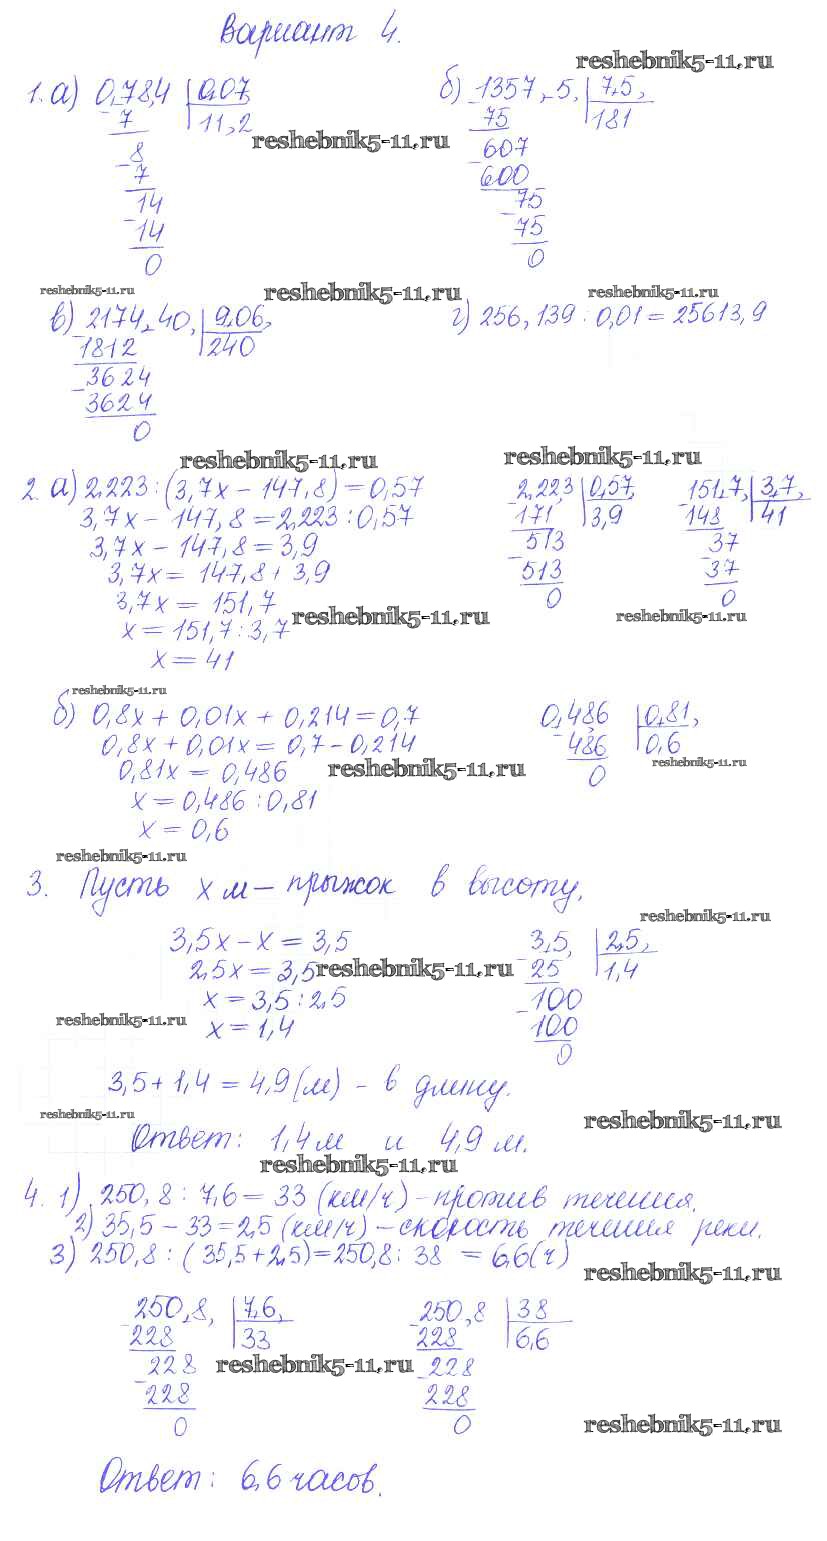 Вариант 4.
reshebnik5-11.ru
1. а) 0,78,4 | 0,07,
7
11,2
8
7
14
14
0
reshebnik5-11.ru
б) 1357,5, | 7,5,
75
181
607
600
75
75
0
reshebnik5-11.ru
reshebnik5-11.ru
reshebnik5-11.ru
в) 2174,40, | 9,06,
1812
240
3624
3624
0
г) 256,139 : 0,01 = 25613,9
reshebnik5-11.ru
reshebnik5-11.ru
2. а) 2,223 : (3,7х - 147,8) = 0,57
3,7х - 147,8 = 2,223 : 0,57
3,7х - 147,8 = 3,9
3,7х = 147,8 + 3,9
3,7х = 151,7
х = 151,7 : 3,7
х = 41
2,22,3 | 0,57,
171
3,9
513
513
0
151,7, | 3,7,
148
41
37
37
0
reshebnik5-11.ru
reshebnik5-11.ru
reshebnik5-11.ru
б) 0,8х + 0,01х + 0,214 = 0,7
0,8х + 0,01х = 0,7 - 0,214
0,81х = 0,486
х = 0,486 : 0,81
х = 0,6
0,486 | 0,81,
486
0,6
0
reshebnik5-11.ru
reshebnik5-11.ru
reshebnik5-11.ru
3. Пусть х м - прыжок в высоту.
reshebnik5-11.ru
3,5х - х = 3,5
2,5х = 3,5
х = 3,5 : 2,5
х = 1,4
3,5, | 2,5,
25
1,4
100
100
0
reshebnik5-11.ru
reshebnik5-11.ru
3,5 + 1,4 = 4,9 (м) - в длину.
reshebnik5-11.ru
reshebnik5-11.ru
Ответ: 1,4 м и 4,9 м.
reshebnik5-11.ru
4. 1) 250,8 : 7,6 = 33 (км/ч) - против течения.
2) 35,5 - 33 = 2,5 (км/ч) - скорость течения реки.
3) 250,8 : (35,5 + 2,5) = 250,8 : 38 = 6,6 (ч)
reshebnik5-11.ru
250,8, | 7,6,
228
33
228
228
0
250,8 | 38
228
6,6
228
228
0
reshebnik5-11.ru
reshebnik5-11.ru
Ответ: 6,6 часов.